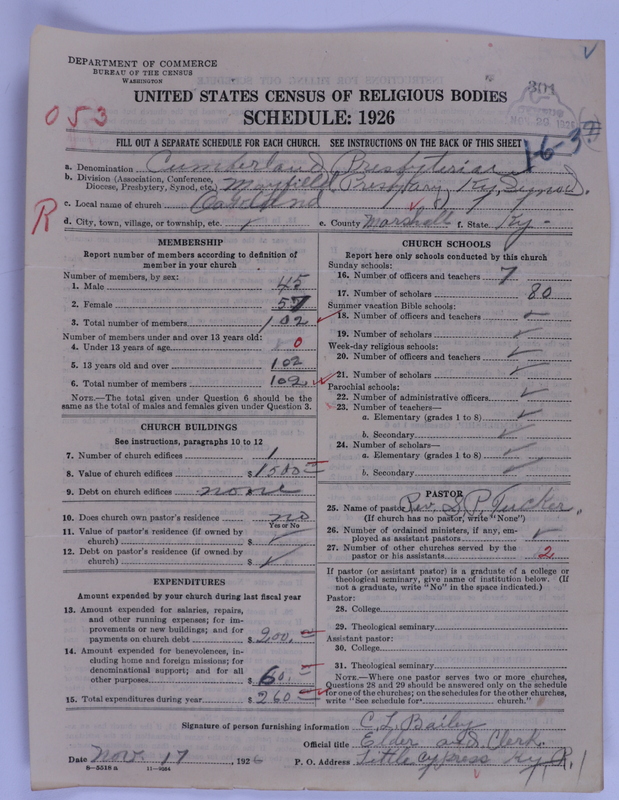 DEPARTMENT OF COMMERCE
BUREAU OF THE CENSUS
WASHINGTON
053
301
UNITED STATES CENSUS OF RELIGIOUS BODIES
SCHEDULE: 1926
FILL OUT A SEPARATE SCHEDULE FOR EACH CHURCH. SEE INSTRUCTIONS ON THE BACK OF THIS SHEET
16-3
a. Denomination Cumberland Presbyterian
b. Division (Association, Conference, Diocese, Presbytery, Synod, etc.) Mayfield Presbytary Ky, Synod.
c. Local name of church Oakland
R
d. City, town, village, or township, etc. e. County Marshall f. State Ky-
MEMBERSHIP
Report number of members according to definition of
member in your church
Number of members, by sex:
1. Male 45
2. Female 57
3. Total number of members 102
Number of members under and over 13 years old:
4. Under 13 years of age 0
5. 13 years old and over 102
6. Total number of members 102
NOTE.—The total given under Question 6 should be the
same as the total of males and females given under Question 3.
CHURCH BUILDINGS
See instructions, paragraphs 10 to 12
7. Number of church edifices 1
8. Value of church edifices $1500
9. Debt on church edifices none
10. Does church own pastor's residence no
Yes or No
11. Value of pastor's residence (if owned by
church) $ ✓
12. Debt on pastor's residence (if owned by
church) $ ✓
EXPENDITURES
Amount expended by your church during last fiscal year
13. Amount expended for salaries, repairs,
and other running expenses; for im-
provements or new buildings; and for
payments on church debt $200.
14. Amount expended for benevolences, in-
cluding home and foreign missions; for
denominational support; and for all
other purposes $60.
15. Total expenditures during year $260
CHURCH SCHOOLS
Report here only schools conducted by this church
Sunday schools:
16. Number of officers and teachers 7
17. Number of scholars 80
Summer vacation Bible schools:
18. Number of officers and teachers
19. Number of scholars ✓
Week-day religious schools:
20. Number of officers and teachers ✓
21. Number of scholars ✓
Parochial schools:
22. Number of administrative officers ✓
23. Number of teachers—
a. Elementary (grades 1 to 8) ✓
b. Secondary ✓
24. Number of scholars—
a. Elementary (grades 1 to 8) ✓
b. Secondary ✓
PASTOR
25. Name of pastor Rev. S. P. Tucker.
(If church has no pastor, write "None")
26. Number of ordained ministers, if any, em-
ployed as assistant pastors ✓
27. Number of other churches served by the
pastor or his assistants 2
If pastor (or assistant pastor) is a graduate of a college or
theological seminary, give name of institution below. (If
not a graduate, write "No" in the space indicated.)
Pastor:
28. College
29. Theological seminary
Assistant pastor:
30. College
31. Theological seminary
NOTE.—Where one pastor serves two or more churches,
Questions 28 and 29 should be answered only on the schedule
for one of the churches; on the schedules for the other churches,
write "See schedule for church."
Signature of person furnishing information C. L. Bailey
Official title Elder and Clerk.
Date Nov. 17, 1926 P. O. Address Little Cypress Ky R. 1
8-5518 a 11-9284